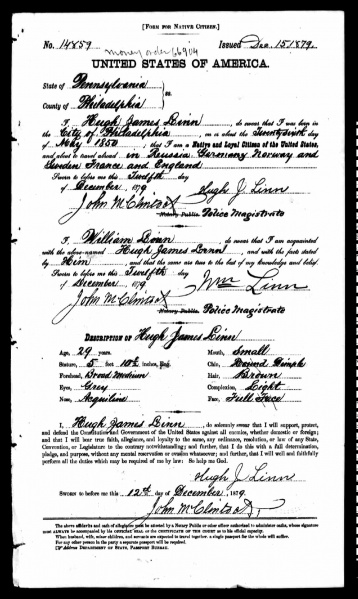 [FORM FOR NATIVE CITIZEN.]
No. 14859 Issued Dec. 15/1879.
money order 66904
UNITED STATES OF AMERICA.
State of Pennsylvania
County of Philadelphia } ss:
I, Hugh James Linn, do swear that I was born in the
City of Philadelphia, on or about the Twenty Sixth day
of May 1850, that I am a Native and Loyal Citizen of the United States,
and about to travel abroad in Russia Germany Norway and
Sweden France and England
Sworn to before me this Twelfth day
of December, 1879 Hugh J Linn
John McClintock
Notary Public. Police Magistrate
I, William Linn, do swear that I am acquainted
with the above-named Hugh James Linn, and with the facts stated
by Him, and that the same are true to the best of my knowledge and belief.
Sworn to before me this Twelfth day
of December, 1879 Wm Linn
John McClintock
Notary Public. Police Magistrate
DESCRIPTION OF Hugh James Linn
Age, 29 years. Mouth, Small
Stature, 5 feet 10½ inches, Eng. Chin, Round Dimple
Forehead, Broad Medium Hair, Brown
Eyes, Grey Complexion, Light
Nose, Aquiline Face, Full Face
I, Hugh James Linn, do solemnly swear that I will support, protect,
and defend the Constitution and Government of the United States against all enemies, whether domestic or foreign;
and that I will bear true faith, allegiance, and loyalty to the same, any ordinance, resolution, or law of any State,
Convention, or Legislature to the contrary notwithstanding; and further, that I do this with a full determination,
pledge, and purpose, without any mental reservation or evasion whatsoever; and further, that I will well and faithfully
perform all the duties which may be required of me by law: So help me God.
Hugh J Linn
SWORN to before me this 12th day of December, 1879.
John McClintock
The above affidavits and oath of allegiance must be attested by a Notary Public or other officer authorized to administer oaths, whose signature
must ALWAYS be accompanied by his OFFICIAL SEAL or the CERTIFICATE OF THE COURT as to his official capacity.
When husband, wife, minor children, and servants are expected to travel together, a single passport for the whole will suffice.
For any other person in the party a separate passport will be required.
Address DEPARTMENT OF STATE, PASSPORT BUREAU.